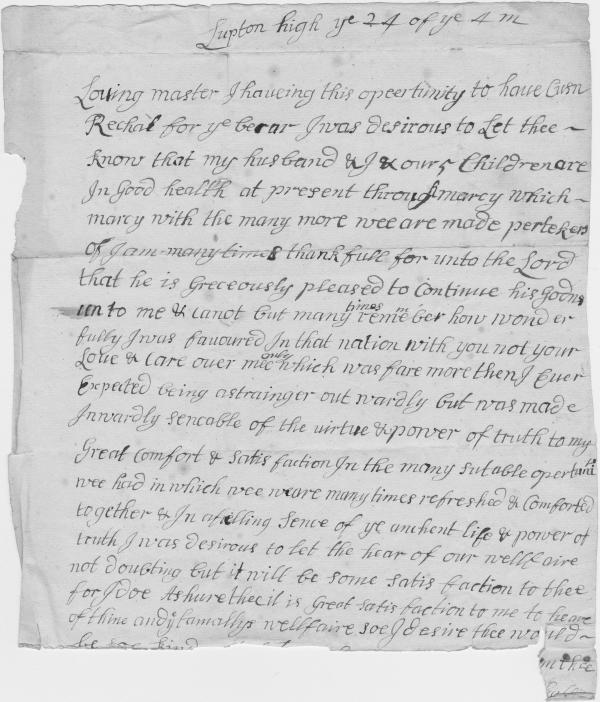 Lupton high ye 24 of ye 4 m
Loving master I haveing this opeertunity to have Cusn
Rechal for ye berar I was desirous to Let thee ~
know that my husband & I & our 5 Children are
In Good health at present through marcy which ~
marcy with the many more wee are made pertekers
of I am many times thankfull for unto the Lord
that he is Greceously pleased to Continue his Godns
unto me & canot but many times remember how wonder
fully I was favoured In that nation with you not your
Love & Care over mee only which was fare more then I Ever
Expected being a strainger out wardly but was made
Inwardly sencable of the virtue & power of truth to my
Great Comfort & satis faction In the many sutable
wee had in which wee weare many times refreshed & Comforted
together & In a feilling Sence of ye anchent life & power of
truth I was desirous to let the hear of our wellfaire
not doubting but it will be some satis faction to thee
for I doe Ashure thee it is Great satis faction to me to heare
of thine and thy famallys wellfaire soe I desire thee would ~
be soe kind
thee